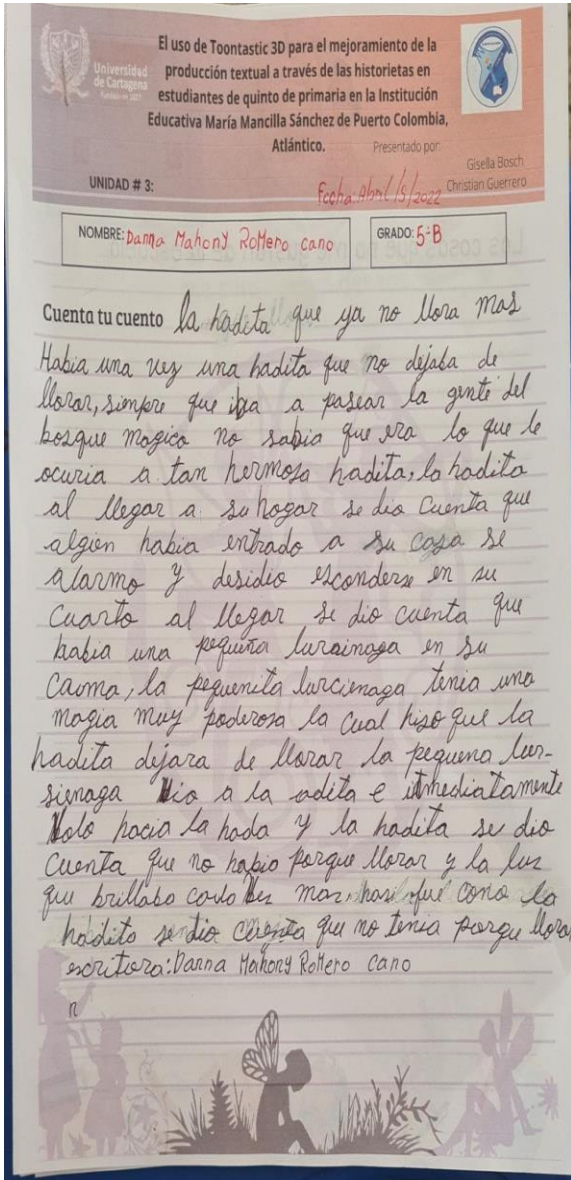 Universidad
de Cartagena
Fundada en 1827
El uso de Toontastic 3D para el mejoramiento de la
producción textual a través de las historietas en
estudiantes de quinto de primaria en la Institución
Educativa María Mancilla Sánchez de Puerto Colombia,
Atlántico.
Presentado por:
Gisella Bosch
Christian Guerrero
UNIDAD # 3:
Fecha: Abril/5/2022
NOMBRE: Danna Mahony RoMero cano
GRADO: 5-B
Cuenta tu cuento la hadita que ya no llora mas
Habia una vez una hadita que no dejaba de
llorar, siempre que iba a pasear la gente del
bosque magico no sabia que era lo que le
ocuria a tan hermosa hadita, la hadita
al llegar a su hogar se dio cuenta que
algien habia entrado a su casa se
alarmo y desidio esconderse en su
cuarto al llegar se dio cuenta que
habia una pequeña en su
cama, la pequeñita lurcienaga tenia una
magia muy poderosa la cual hiso que la
hadita dejara de llorar la pequeña luer-
sienaga Vio a la adita e inmediatamente
Volo hacia la hada y la hadita se dio
cuenta que no habia porque llorar y la luz
que brillaba cada Vez mas, hasi fue como la
hadita se dio cuenta que no tenia porque llorar
escritora: Danna Mahony RoMero cano
n